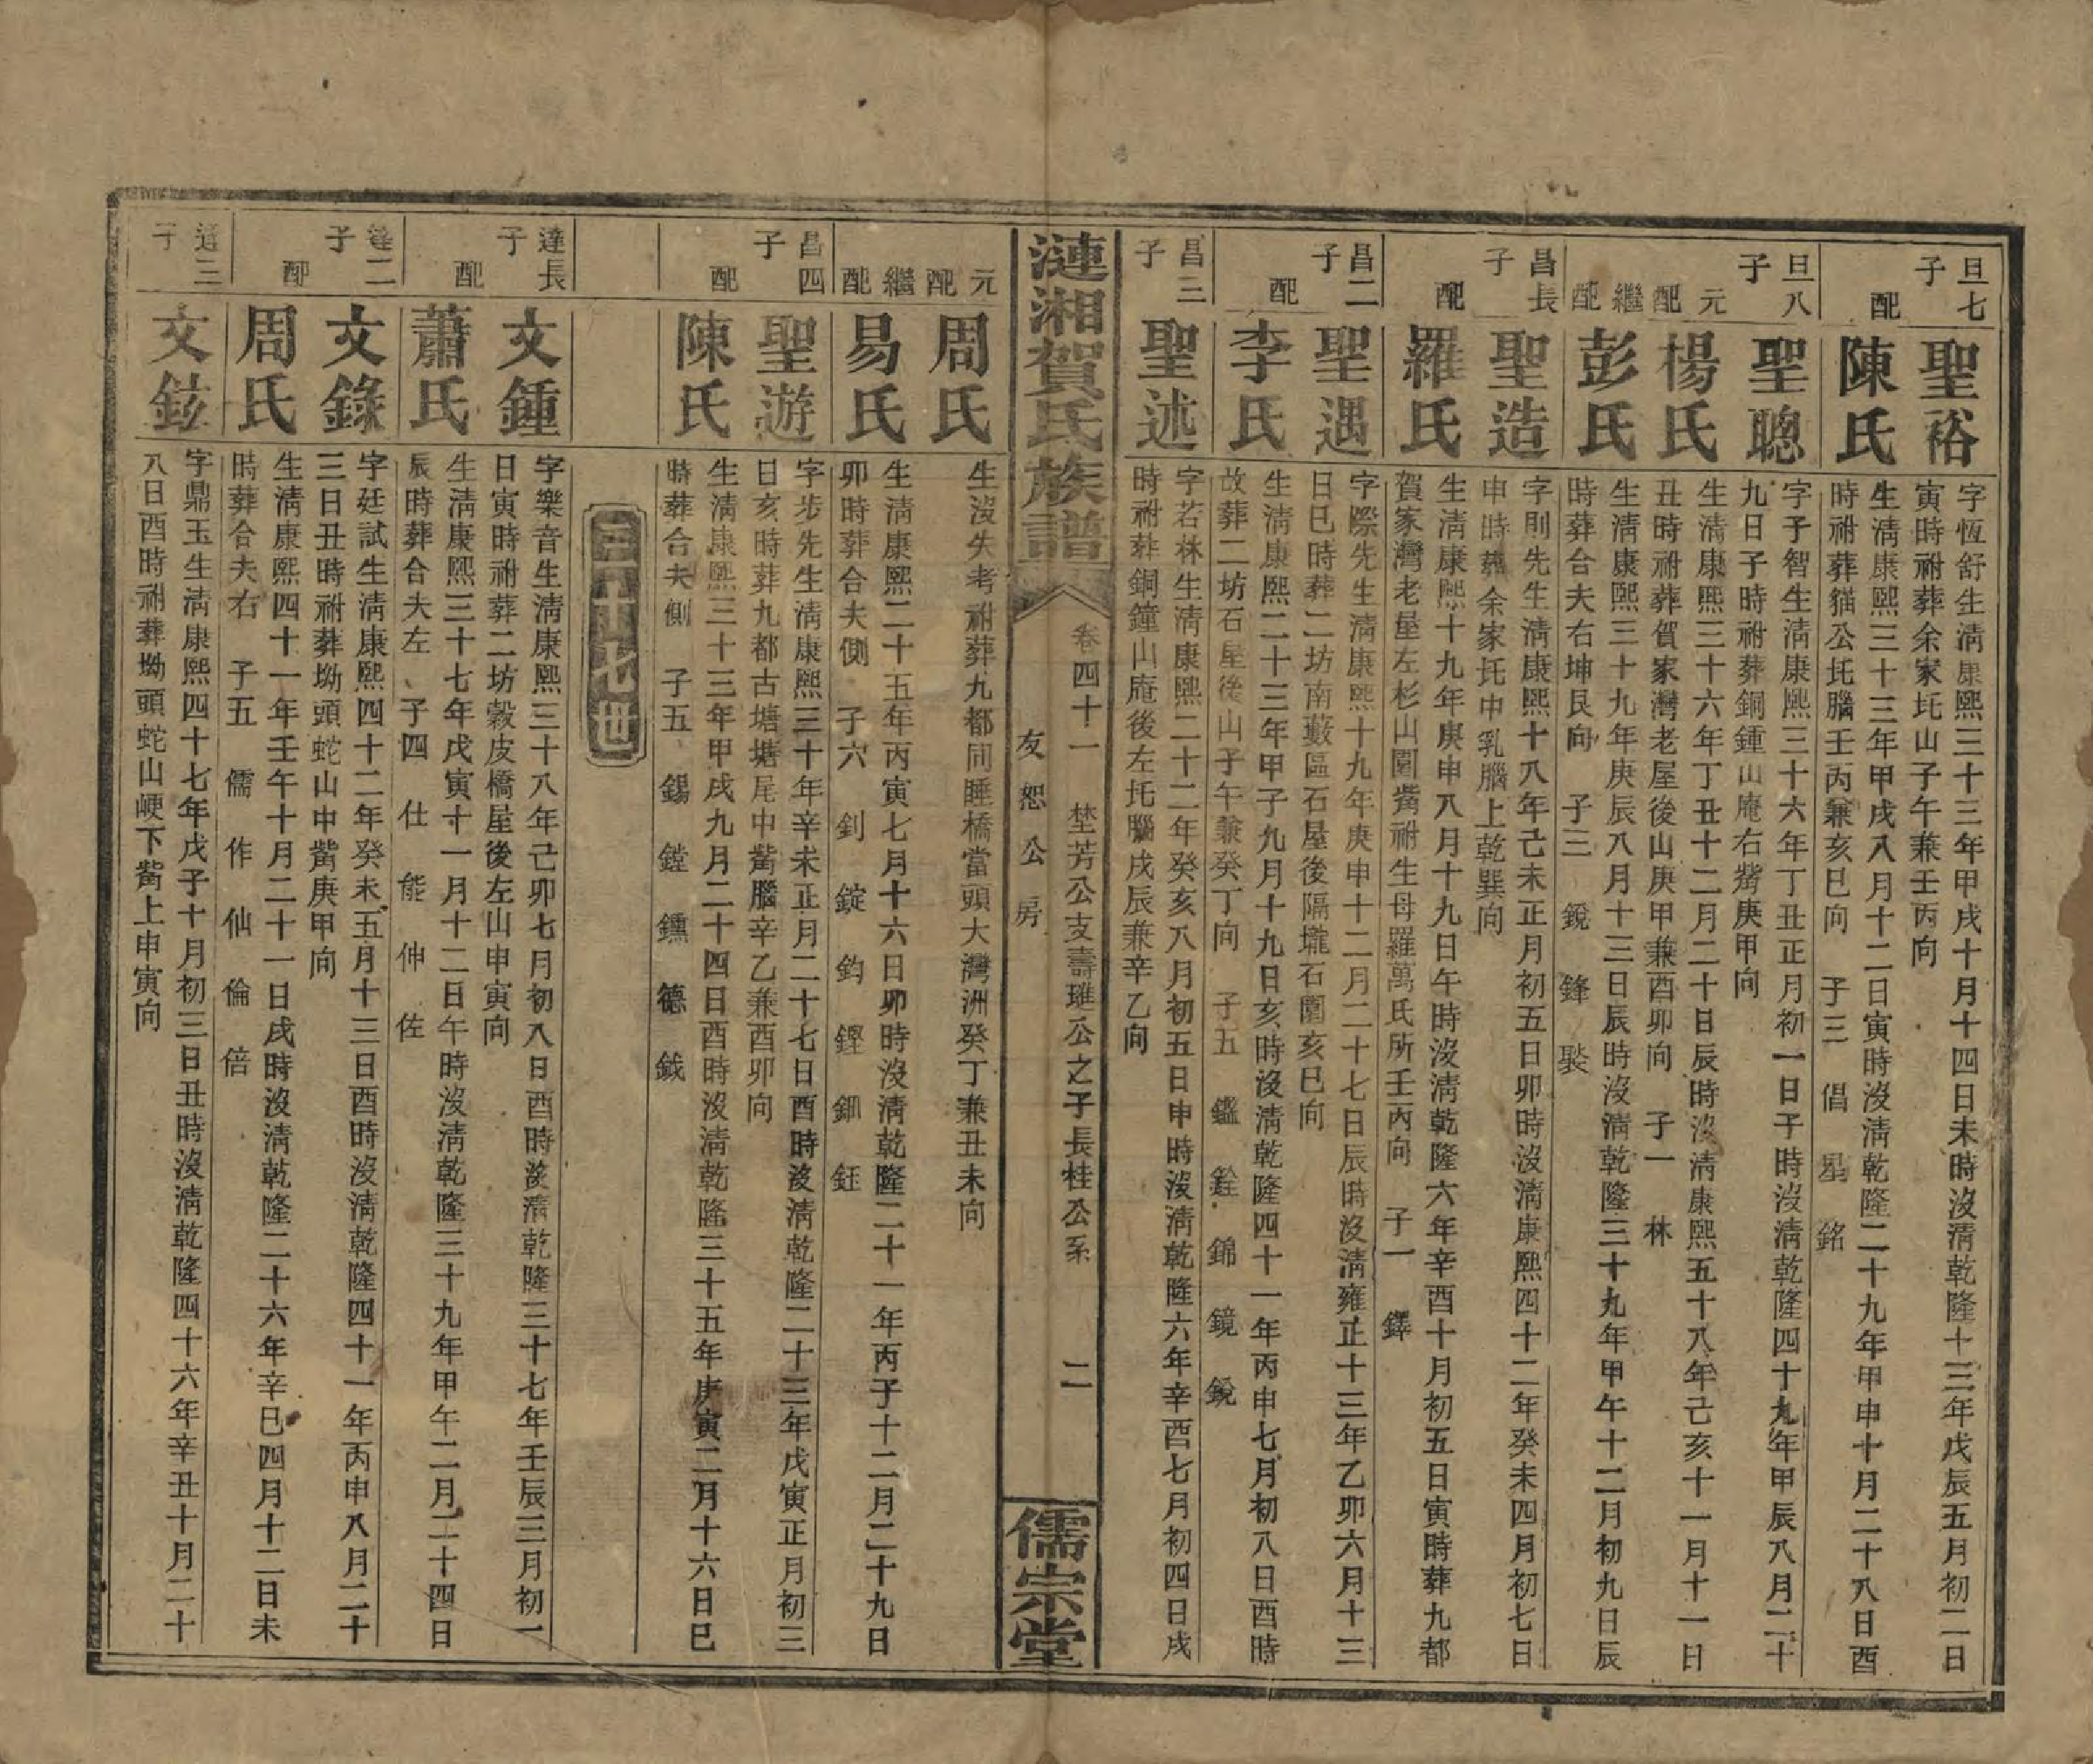 旦七子
聖裕
字恆舒生清康熙三十三年甲戌十月十四日未時沒清乾隆十三年戊辰五月初二日
寅時祔葬余家圫山子午兼壬丙向
配
陳氏
生清康熙三十三年甲戌八月十二日寅時沒清乾隆二十九年甲申十月二十八日酉
時祔葬貓公圫腦壬丙兼亥巳向 子三 倡 星 銘
旦八子
聖聰
字子智生清康熙三十六年丁丑正月初一日子時沒清乾隆四十九年甲辰八月二十
九日子時祔葬銅鍾山庵右嘴庚甲向
元配
楊氏
生清康熙三十六年丁丑十二月二十日辰時沒清康熙五十八年己亥十一月十一日
丑時祔葬賀家灣老屋後山庚甲兼酉卯向 子一 林
繼配
彭氏
生清康熙三十九年庚辰八月十三日辰時沒清乾隆三十九年甲午十二月初九日辰
時葬合夫右坤艮向 子三 銳 鋒
昌長子
聖造
字則先生清康熙十八年己未正月初五日卯時沒清康熙四十二年癸未四月初七日
申時葬余家圫中乳腦上乾巽向
配
羅氏
生清康熙十九年庚申八月十九日午時沒清乾隆六年辛酉十月初五日寅時葬九都
賀家灣老屋左杉山園嘴祔生母羅萬氏所壬丙向 子一 鐸
昌二子
聖遇
字際先生清康熙十九年庚申十二月二十七日辰時沒清雍正十三年乙卯六月十三
日巳時葬二坊南藪區石屋後隔壠石園亥巳向
配
李氏
生清康熙二十三年甲子九月十九日亥時沒清乾隆四十一年丙申七月初八日酉時
故葬二坊石屋後山子午兼癸丁向 子五 鑑 銓 錦 鏡 銳
昌三子
聖述
字若林生清康熙二十二年癸亥八月初五日申時沒清乾隆六年辛酉七月初四日戌
時祔葬銅鐘山庵後左圫腦戌辰兼辛乙向
漣湘賀氏族譜
卷四十一 埜芳公支壽璀公之子長桂公系
友恕公房
二
儒宗堂
元配
周氏
生沒失考祔葬九都同睡橋當頭大灣洲癸丁兼丑未向
繼配
易氏
生清康熙二十五年丙寅七月十六日卯時沒清乾隆二十一年丙子十二月二十九日
卯時葬合夫側 子六 釗 錠 鈞 鏗 鈿 鈺
昌四子
聖遊
字步先生清康熙三十年辛未正月二十七日酉時沒清乾隆二十三年戊寅正月初三
日亥時葬九都古塘塘尾中嘴腦辛乙兼酉卯向
配
陳氏
生清康熙三十三年甲戌九月二十四日酉時沒清乾隆三十五年庚寅二月十六日巳
時葬合夫側 子五 錫 鏜 鑂 德 鉞
達長子
文鍾
字樂音生清康熙三十八年己卯七月初八日酉時沒清乾隆三十七年壬辰三月初一
日寅時祔葬二坊穀皮橋屋後左山申寅向
配
蕭氏
生清康熙三十七年戊寅十一月十二日午時沒清乾隆三十九年甲午二月二十四日
辰時葬合夫左 子四 仕 能 伸 佐
達二子
文錄
字廷試生清康熙四十二年癸未五月十三日酉時沒清乾隆四十一年丙申八月二十
三日丑時祔葬坳頭蛇山中嘴庚甲向
配
周氏
生清康熙四十一年壬午十月二十一日戌時沒清乾隆二十六年辛巳四月十二日未
時葬合夫右 子五 儒 作 仙 倫 倍
達三子
文鉉
字鼎玉生清康熙四十七年戊子十月初三日丑時沒清乾隆四十六年辛丑十月二十
八日酉時祔葬坳頭蛇山崾下嘴上申寅向